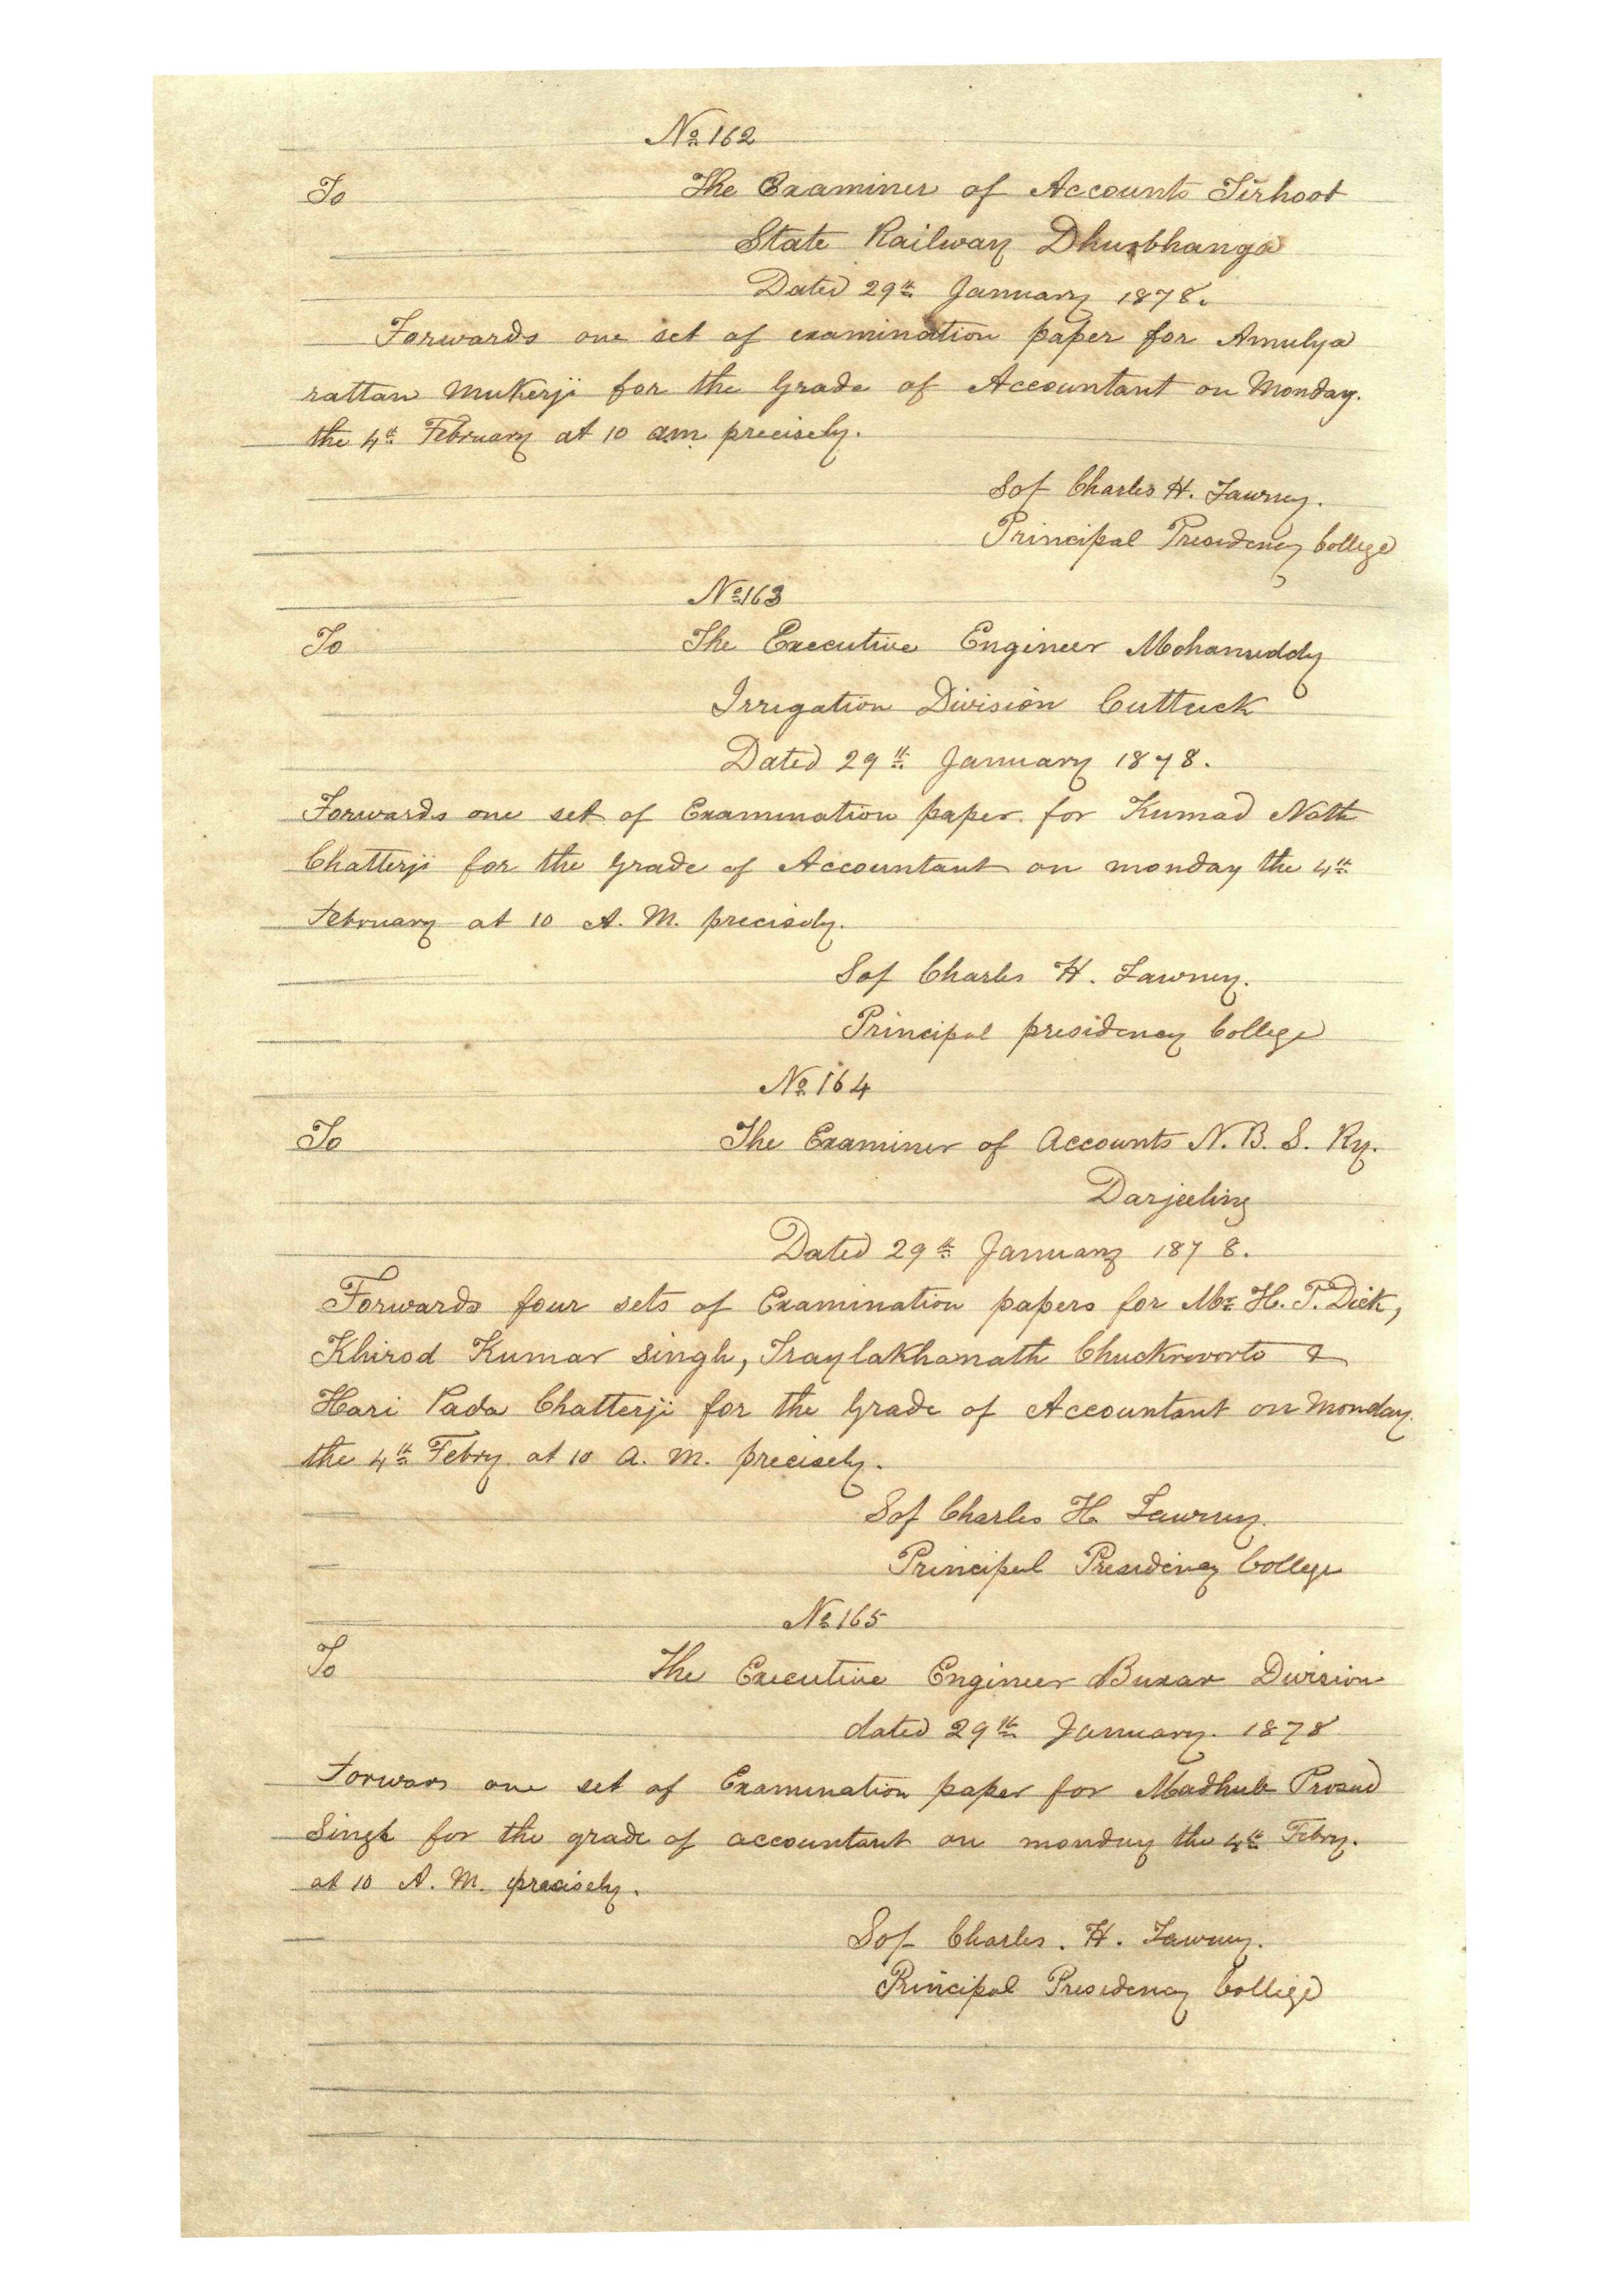 No 162
To The Examiner of Accounts Tirhoot
State Railway Dhurbhanga
Dated 29th January 1878.
Forwards one set of examination paper for Amulya
rattan Mukerji for the Grade of Accountant on Monday.
the 4th February at 10 am precisely.
Sd/ Charles H. Tawney.
Principal Presidency College
No 163
To The Executive Engineer Mohanuddy
Irrigation Division Cuttuck
Dated 29th January 1878.
Forwards one set of Examination paper for Kumad Nath
Chatterji for the Grade of Accountant on monday the 4th
February at 10 A. M. precisely.
Sd/ Charles H. Tawney.
Principal presidency College
No 164
To The Examiner of Accounts N. B. S. Ry.
Darjeeling
Dated 29th January 1878.
Forwards four sets of Examination papers for Mr H. T. Dick,
Khirod Kumar Singh, Traylakhanath Chuckrworto &
Hari Pada Chatterji for the Grade of Accountant on Monday
the 4th Febry. at 10 A. M. precisely.
Sd/ Charles H. Tawney.
Principal Presidency College
No 165
To The Executive Engineer Buxar Division
dated 29th January. 1878
Forwars one set of Examination paper for Madhub Prosad
Singh for the grade of accountant on monday the 4th Febry.
at 10 A. M. precisely.
Sd/ Charles. H. Tawney.
Principal Presidency College